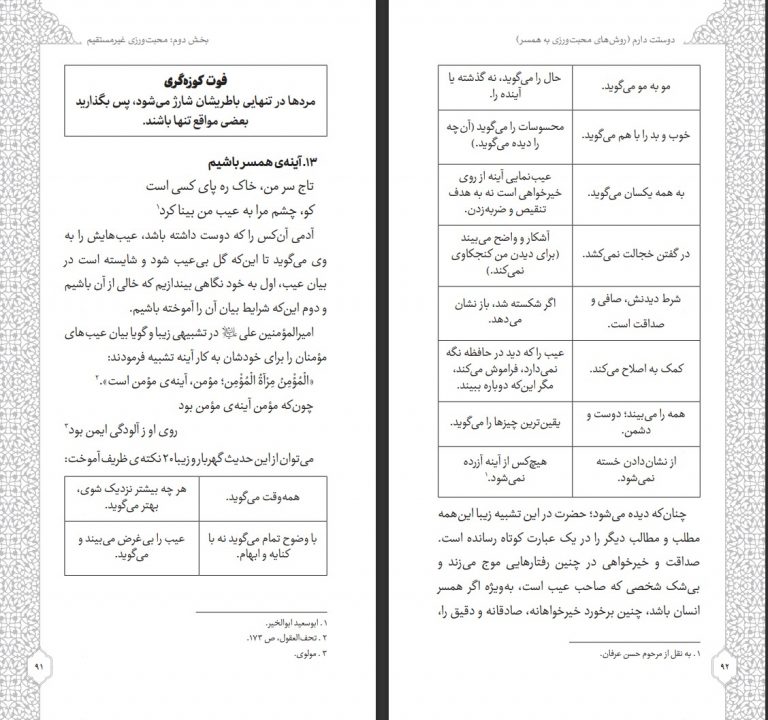 بخش دوم: محبت‌ورزی غیرمستقیم
فوت کوزه‌گری
مردها در تنهایی باطریشان شارژ می‌شود، پس بگذارید
بعضی مواقع تنها باشند.
۱۳. آینه‌ی همسر باشیم
تاج سر من، خاک ره پای کسی است
کو، چشم مرا به عیب من بینا کرد۱
آدمی آن‌کس را که دوست داشته باشد، عیب‌هایش را به
وی می‌گوید تا این‌که گل بی‌عیب شود و شایسته است در
بیان عیب، اول به خود نگاهی بیندازیم که خالی از آن باشیم
و دوم این‌که شرایط بیان آن را آموخته باشیم.
امیرالمؤمنین علی در تشبیهی زیبا و گویا بیان عیب‌های
مؤمنان را برای خودشان به کار آینه تشبیه فرمودند:
«الْمُؤْمِنُ مِرْآةُ الْمُؤْمِنِ؛ مؤمن، آینه‌ی مؤمن است».۲
چون‌که مؤمن آینه‌ی مؤمن بود
روی او ز آلودگی ایمن بود۳
می‌توان از این حدیث گهربار و زیبا ۲۰ نکته‌ی ظریف آموخت:
همه‌وقت می‌گوید.
هر چه بیشتر نزدیک شوی،
بهتر می‌گوید.
با وضوح تمام می‌گوید نه با
کنایه و ابهام.
عیب را بی‌غرض می‌بیند و
می‌گوید.
۱. ابوسعید ابوالخیر.
۲. تحف‌العقول، ص ۱۷۳.
۳. مولوی.
۹۱
دوستت دارم (روش‌های محبت‌ورزی به همسر)
مو به مو می‌گوید.
حال را می‌گوید، نه گذشته یا
آینده را.
خوب و بد را با هم می‌گوید.
محسوسات را می‌گوید (آن‌چه
را دیده می‌گوید.)
به همه یکسان می‌گوید.
عیب‌نمایی آینه از روی
خیرخواهی است نه به هدف
تنقیص و ضربه‌زدن.
در گفتن خجالت نمی‌کشد.
آشکار و واضح می‌بیند
(برای دیدن من کنجکاوی
نمی‌کند.)
شرط دیدنش، صافی و
صداقت است.
اگر شکسته شد، باز نشان
می‌دهد.
کمک به اصلاح می‌کند.
عیب را که دید در حافظه نگه
نمی‌دارد، فراموش می‌کند،
مگر این‌که دوباره ببیند.
همه را می‌بیند؛ دوست و
دشمن.
یقین‌ترین چیزها را می‌گوید.
از نشان‌دادن خسته
نمی‌شود.
هیچ‌کس از آینه آزرده
نمی‌شود.۱
چنان‌که دیده می‌شود؛ حضرت در این تشبیه زیبا این‌همه
مطلب و مطالب دیگر را در یک عبارت کوتاه رسانده است.
صداقت و خیرخواهی در چنین رفتارهایی موج می‌زند و
بی‌شک شخصی که صاحب عیب است، به‌ویژه اگر همسر
انسان باشد، چنین برخورد خیرخواهانه، صادقانه و دقیق را،
۱. به نقل از مرحوم حسن عرفان.
۹۲